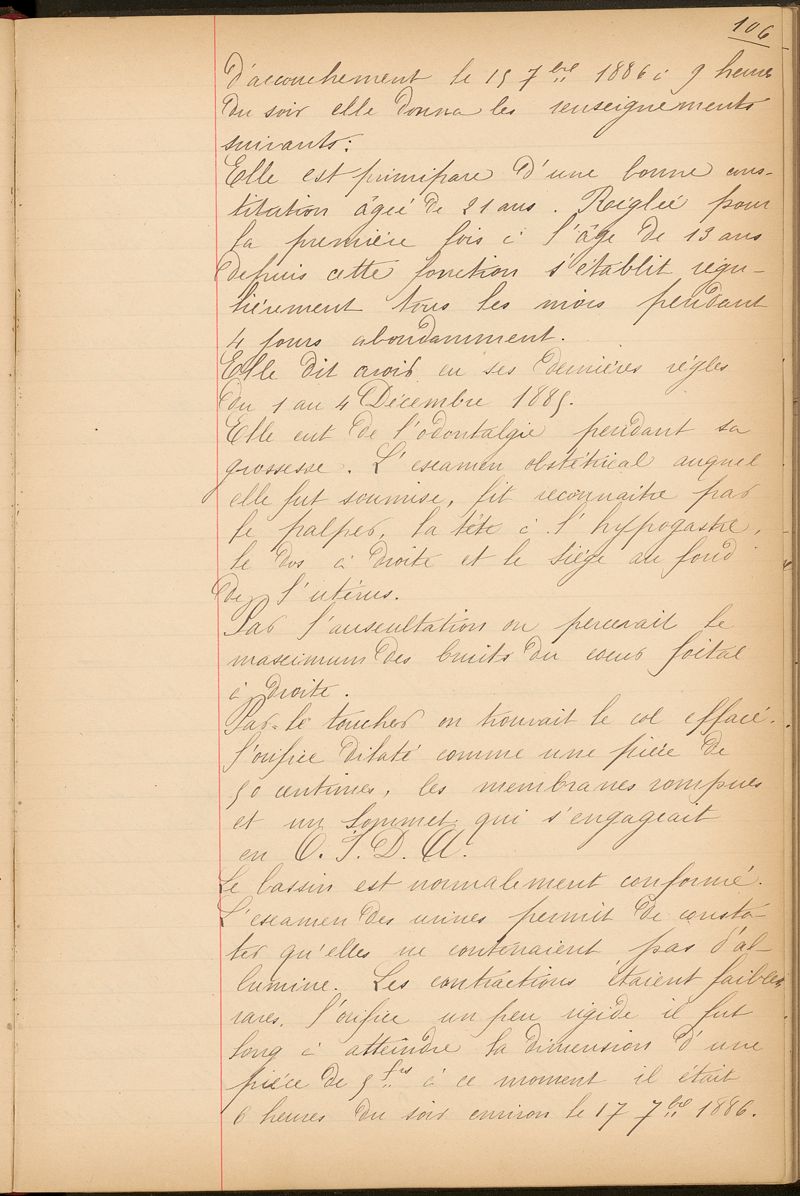 106
d'accouchement le 15 7bre 1886 à 9 heures
du soir elle donna les renseignements
suivants:
Elle est primipare d'une bonne cons-
titution âgée de 21 ans. Réglée pour
la première fois à l'âge de 13 ans
depuis cette fonction s'établit régu-
lièrement tous les mois pendant
4 jours abondamment.
Elle dit avoir eu ses dernières règles
du 1 au 4 Décembre 1885.
Elle eut de l'odontalgie pendant sa
grossesse. L'examen obstétrical auquel
elle fut soumise, fit reconnaitre par
le palper, la tête à l'hypogastre,
le dos à droite et le siège au fond
de l'utérus.
Par l'auscultation on percevait le
maximum des bruits du coeur foetal
à droite.
Par le toucher on trouvait le col effacé.
l'orifice dilaté comme une pièce de
50 centimes, les membranes rompues
et un sommet qui s'engageait
en O. I. D. A.
Le bassin est normalement conformé.
L'examen des urines permit de consta-
ter qu'elles ne contenaient pas d'al-
bumine. Les contractions étaient faibles
rares, l'orifice un peu rigide il fut
long à atteindre la dimension d'une
pièce de 5 frs à ce moment il était
6 heures du soir environ le 17 7bre 1886.